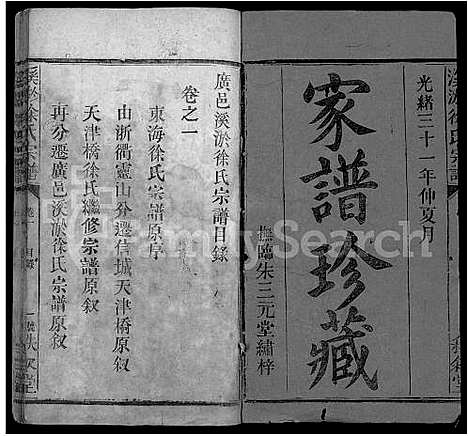 光緒三十一年仲夏月
家譜珍藏
撫臨朱三元堂繡梓
廣邑溪淤徐氏宗譜目錄
卷之一
東海徐氏宗譜原序
由浙衢靈山分遷信城天津橋原叙
天津橋徐氏繼修宗譜原叙
再分遷廣邑溪淤徐氏宗譜原叙
溪淤徐氏宗譜
目錄
FamilySearch